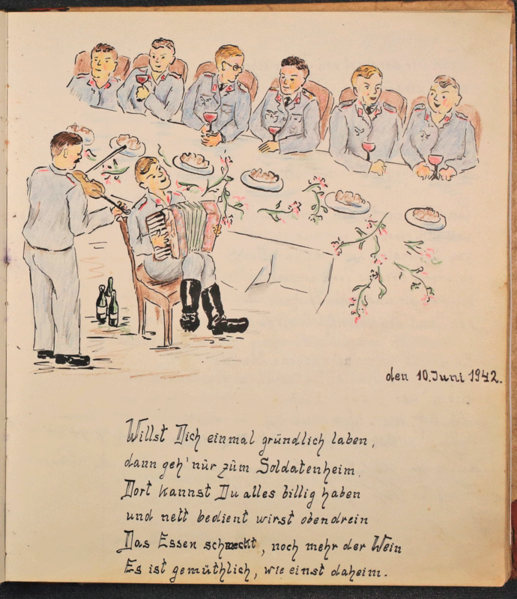 den 10. Juni 1942.
Willst Dich einmal gründlich laben,
dann geh' nur zum Soldatenheim.
Dort kannst Du alles billig haben
und nett bedient wirst obendrein
Das Essen schmeckt, noch mehr der Wein
Es ist gemüthlich, wie einst daheim.